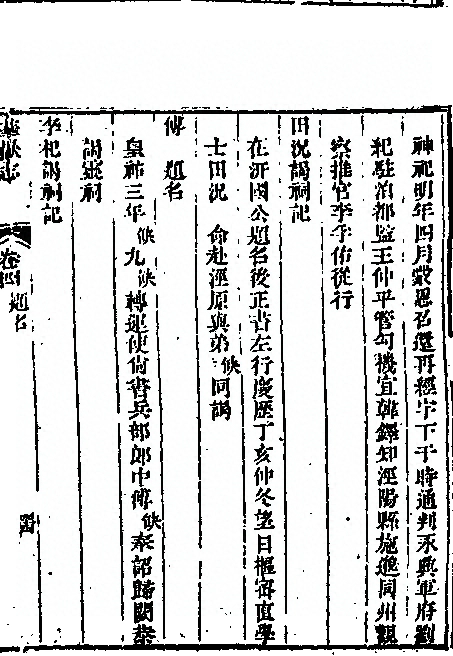 神祀明年四月蒙恩召還再經宇下于時通判永興軍府劉
紀駐泊都監王仲平管勾機宜韓鐸知涇陽縣施邈同州觀
察推官李子佑從行
田況謁祠記
在沂國公題名後正書左行慶歷丁亥仲冬望日樞密直學
士田況 命赴涇原與弟缺同謁
傅 題名
皇祐三年缺九缺轉運使尙書兵部郎中傅缺奉詔歸闕恭
謁嶽祠
李杞謁祠記
志 卷四 題名